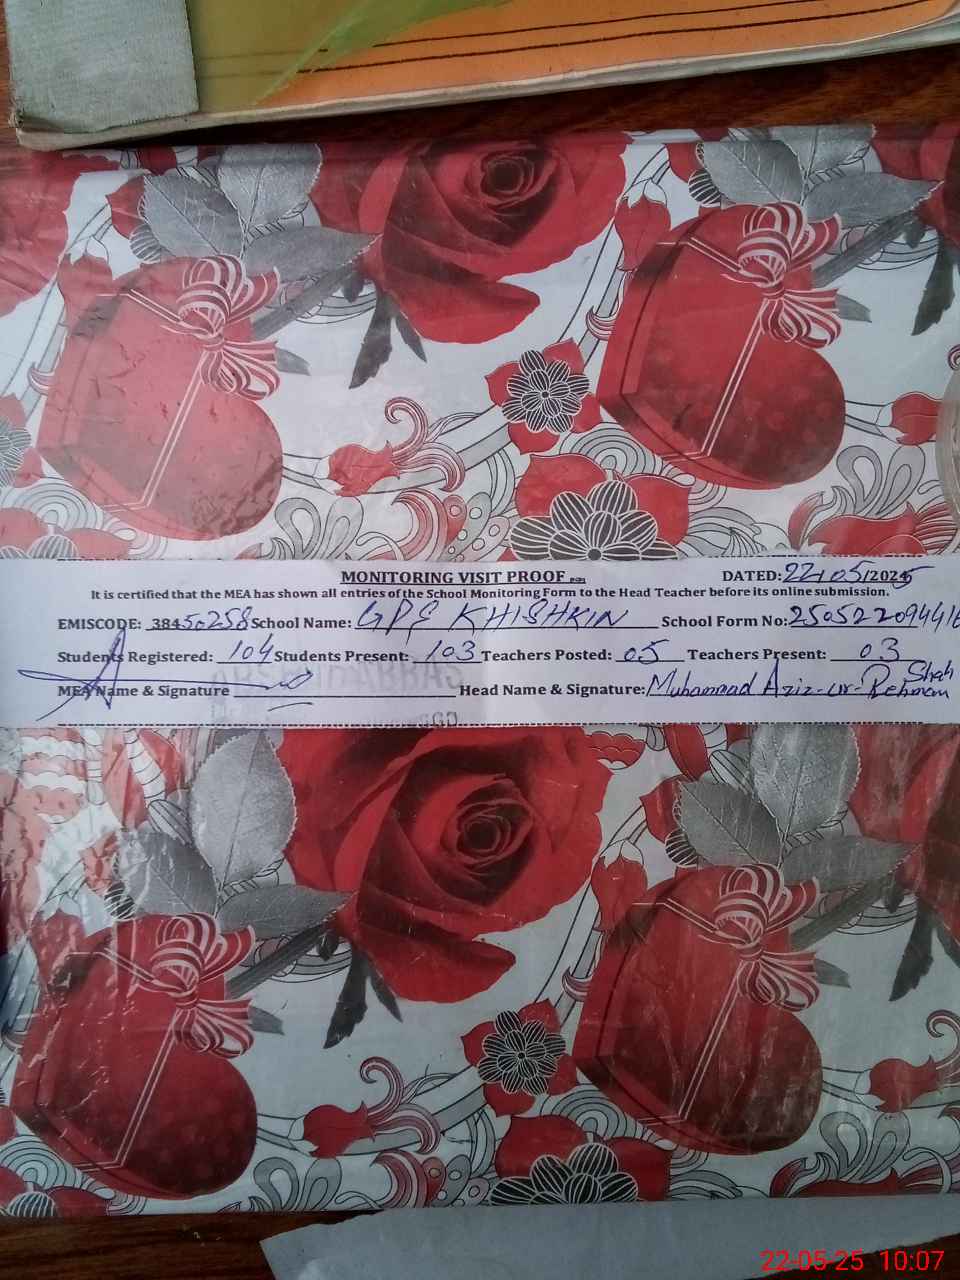 MONITORING VISIT PROOF DATED: 22/05/2025
It is certified that the MEA has shown all entries of the School Monitoring Form to the Head Teacher before its online submission.
EMISCODE: 38450258 School Name: GPS KHISHKIN School Form No: 250522094416
Students Registered: 104 Students Present: 103 Teachers Posted: 05 Teachers Present: 03
MEA Name & Signature Head Name & Signature: Muhammad Aziz-ur-Rehman Shah
22-05-25 10:07